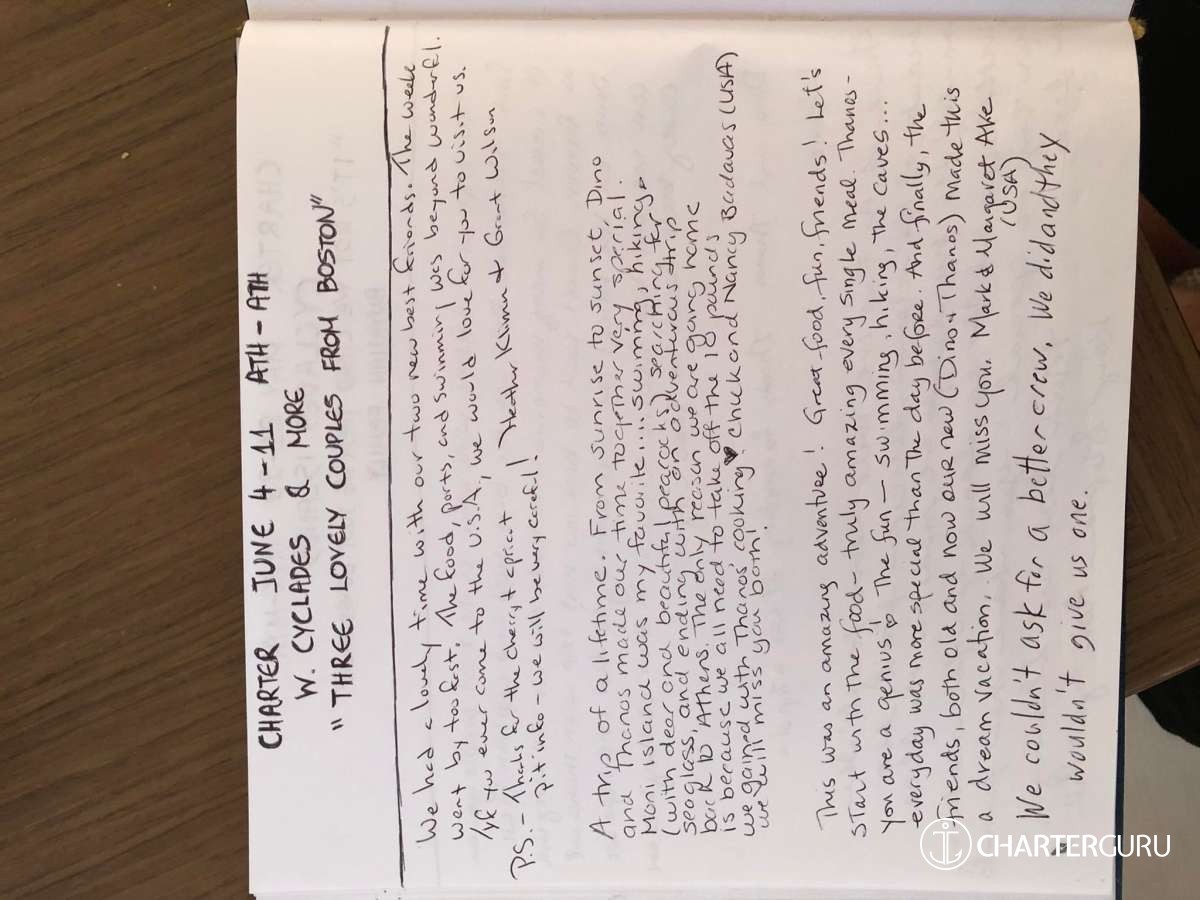 CHARTER JUNE 4-11 ATH-ATH
W. CYCLADES & MORE
"THREE LOVELY COUPLES FROM BOSTON"
We had a lovely time with our two new best friends. The week
went by too fast. The food, ports, and swimming was beyond wonderful.
If you ever come to the U.S.A, we would love for you to visit us.
P.S. - Thanks for the cherry + apricot Heather Klimm & Grant Wilson
pit info - we will be very careful!
A trip of a lifetime. From sunrise to sunset, Dino
and Thanos made our time together very special.
Moni island was my favorite.....swimming, hiking
(with deer and beautiful peacocks) searching for
seaglass, and ending with an adventurous trip
back to Athens. The only reason we are going home
is because we all need to take off the 18 pounds
we gained with Thanos cooking! Chuck and Nancy Badavas (USA)
we will miss you both!
This was an amazing adventure! Great food, fun, friends! Let's
start with the food - truly amazing every single meal. Thanos -
you are a genius! The fun - swimming, hiking, the caves...
everyday was more special than the day before. And finally, the
friends, both old and now our new (Dino & Thanos) Made this
a dream vacation. We will miss you. Mark & Margaret Ake
(USA)
We couldn't ask for a better crew, We did and they
wouldn't give us one.
CHARTERGURU